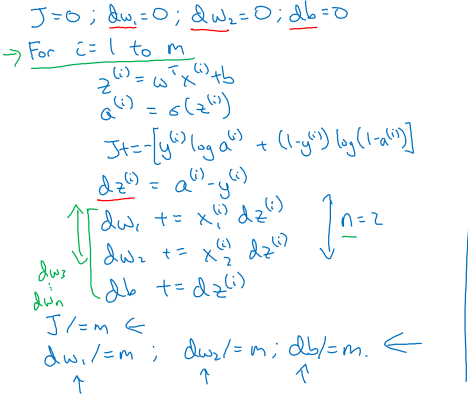 J=0 ; dw₁=0 ; dw₂=0 ; db=0
→ For i=1 to m
z⁽ⁱ⁾ = ωᵀx⁽ⁱ⁾+b
a⁽ⁱ⁾ = σ(z⁽ⁱ⁾)
J+=-[y⁽ⁱ⁾ log a⁽ⁱ⁾ + (1-y⁽ⁱ⁾) log(1-a⁽ⁱ⁾)]
dz⁽ⁱ⁾ = a⁽ⁱ⁾-y⁽ⁱ⁾
dw₁ += x₁⁽ⁱ⁾ dz⁽ⁱ⁾
n=2
dw₂ += x₂⁽ⁱ⁾ dz⁽ⁱ⁾
db += dz⁽ⁱ⁾
dw₃
⋮
dwₙ
J /=m ←
dw₁/=m ; dw₂/=m ; db/=m. ←
↑ ↑ ↑